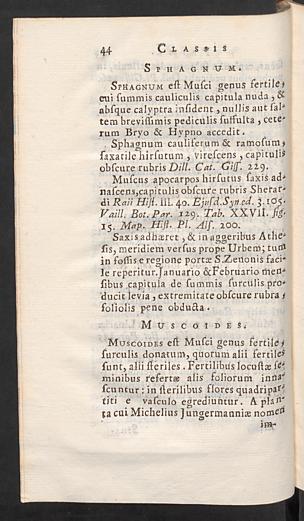 44 CLASSIS
SPHAGNUM.
SPHAGNUM est Musci genus fertile,
cui summis cauliculis capitula nuda, &
absque calyptra insident, nullis aut sal-
tem brevissimis pediculis suffulta, cete-
rum Bryo & Hypno accedit.
Sphagnum cauliferum & ramosum,
saxatile hirsutum, virescens, capitulis
obscure rubris Dill. Cat. Giss. 229.
Muscus apocarpos hirsutus saxis ad-
nascens, capitulis obscure rubris Sherar-
di Raii Hist. III. 40. Ejusd. Syn. ed. 3. 105.
Vaill. Bot. Par. 129. Tab. XXVII. fig.
15. Map. Hist. Pl. Als. 200.
Saxis adhæret, & in aggeribus Athe-
sis, meridiem versus prope Urbem; tum
in fossis e regione portæ S. Zenonis faci-
le reperitur. Januario & Februario men-
sibus capitula de summis surculis pro-
ducit levia, extremitate obscure rubra,
foliolis pene obducta.
MUSCOIDES.
MUSCOIDES est Musci genus fertile,
surculis donatum, quorum alii fertiles
sunt, alii steriles. Fertilibus locustæ se-
minibus refertæ alis foliorum inna-
scuntur: in sterilibus flores quadripar-
titi e vasculo egrediuntur. A plan-
ta cui Michelius Jungermanniæ nomen
im-